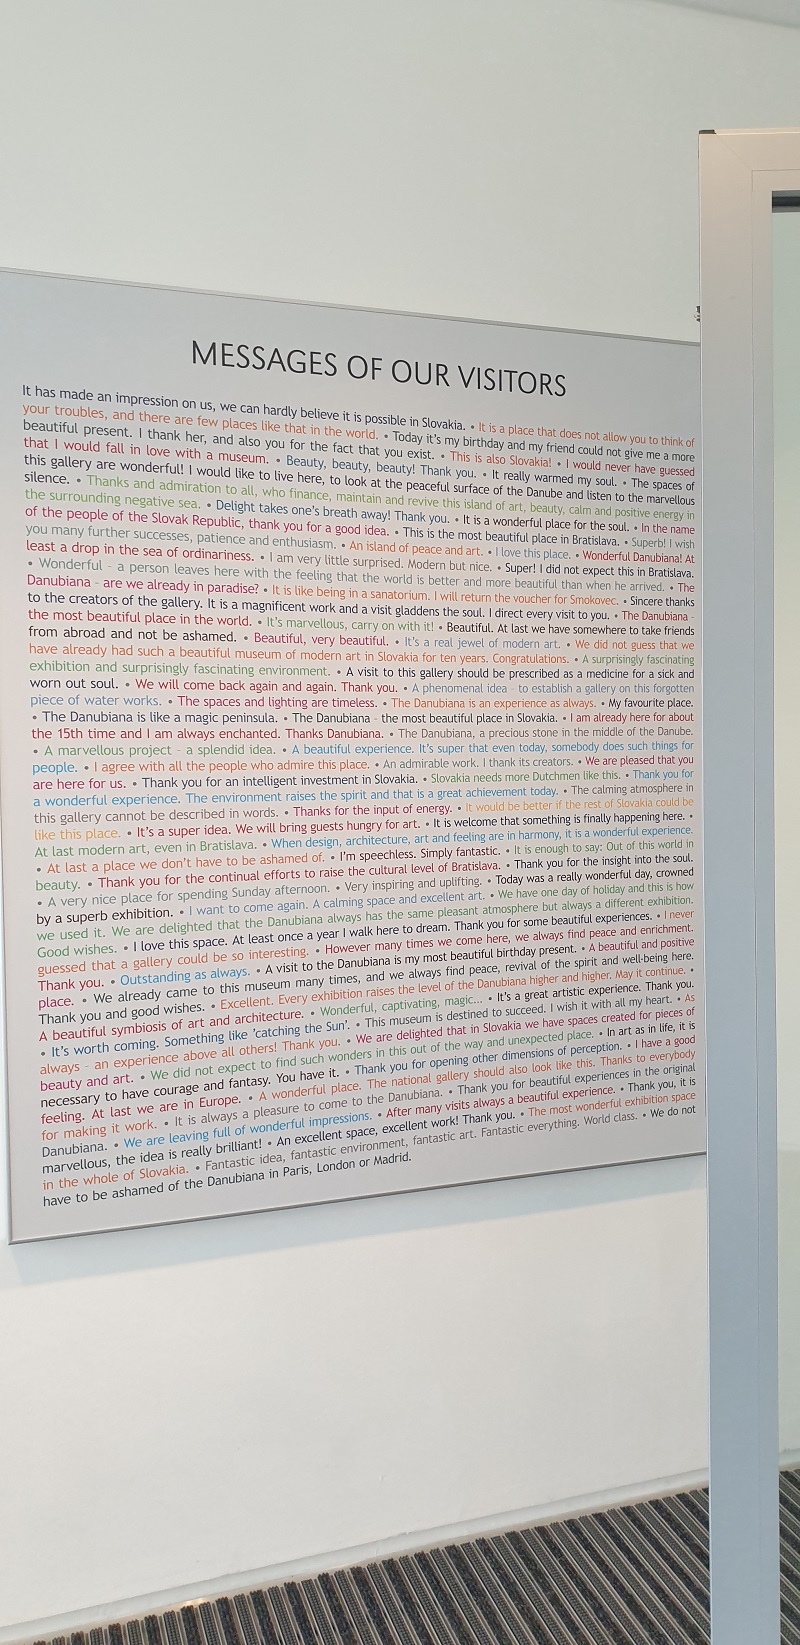 MESSAGES OF OUR VISITORS
It has made an impression on us, we can hardly believe it is possible in Slovakia. • It is a place that does not allow you to think of
your troubles, and there are few places like that in the world. • Today it's my birthday and my friend could not give me a more
beautiful present. I thank her, and also you for the fact that you exist. • This is also Slovakia! • I would never have guessed
that I would fall in love with a museum. • Beauty, beauty, beauty! Thank you. • It really warmed my soul. • The spaces of
this gallery are wonderful! I would like to live here, to look at the peaceful surface of the Danube and listen to the marvellous
silence. • Thanks and admiration to all, who finance, maintain and revive this island of art, beauty, calm and positive energy in
the surrounding negative sea. • Delight takes one's breath away! Thank you. • It is a wonderful place for the soul. • In the name
of the people of the Slovak Republic, thank you for a good idea. • This is the most beautiful place in Bratislava. • Superb! I wish
you many further successes, patience and enthusiasm. • An island of peace and art. • I love this place. • Wonderful Danubiana! At
least a drop in the sea of ordinariness. • I am very little surprised. Modern but nice. • Super! I did not expect this in Bratislava.
• Wonderful - a person leaves here with the feeling that the world is better and more beautiful than when he arrived. • The
Danubiana - are we already in paradise? • It is like being in a sanatorium. I will return the voucher for Smokovec. • Sincere thanks
to the creators of the gallery. It is a magnificent work and a visit gladdens the soul. I direct every visit to you. • The Danubiana -
the most beautiful place in the world. • It's marvellous, carry on with it! • Beautiful. At last we have somewhere to take friends
from abroad and not be ashamed. • Beautiful, very beautiful. • It's a real jewel of modern art. • We did not guess that we
have already had such a beautiful museum of modern art in Slovakia for ten years. Congratulations. • A surprisingly fascinating
exhibition and surprisingly fascinating environment. • A visit to this gallery should be prescribed as a medicine for a sick and
worn out soul. • We will come back again and again. Thank you. • A phenomenal idea - to establish a gallery on this forgotten
piece of water works. • The spaces and lighting are timeless. • The Danubiana is an experience as always. • My favourite place.
• The Danubiana is like a magic peninsula. • The Danubiana - the most beautiful place in Slovakia. • I am already here for about
the 15th time and I am always enchanted. Thanks Danubiana. • The Danubiana, a precious stone in the middle of the Danube.
• A marvellous project - a splendid idea. • A beautiful experience. It's super that even today, somebody does such things for
people. • I agree with all the people who admire this place. • An admirable work. I thank its creators. • We are pleased that you
are here for us. • Thank you for an intelligent investment in Slovakia. • Slovakia needs more Dutchmen like this. • Thank you for
a wonderful experience. The environment raises the spirit and that is a great achievement today. • The calming atmosphere in
this gallery cannot be described in words. • Thanks for the input of energy. • It would be better if the rest of Slovakia could be
like this place. • It's a super idea. We will bring guests hungry for art. • It is welcome that something is finally happening here. •
At last modern art, even in Bratislava. • When design, architecture, art and feeling are in harmony, it is a wonderful experience.
• At last a place we don't have to be ashamed of. • I'm speechless. Simply fantastic. • It is enough to say: Out of this world in
beauty. • Thank you for the continual efforts to raise the cultural level of Bratislava. • Thank you for the insight into the soul.
• A very nice place for spending Sunday afternoon. • Very inspiring and uplifting. • Today was a really wonderful day, crowned
by a superb exhibition. • I want to come again. A calming space and excellent art. • We have one day of holiday and this is how
we used it. We are delighted that the Danubiana always has the same pleasant atmosphere but always a different exhibition.
Good wishes. • I love this space. At least once a year I walk here to dream. Thank you for some beautiful experiences. • I never
guessed that a gallery could be so interesting. • However many times we come here, we always find peace and enrichment.
Thank you. • Outstanding as always. • A visit to the Danubiana is my most beautiful birthday present. • A beautiful and positive
place. • We already came to this museum many times, and we always find peace, revival of the spirit and well-being here.
Thank you and good wishes. • Excellent. Every exhibition raises the level of the Danubiana higher and higher. May it continue. •
A beautiful symbiosis of art and architecture. • Wonderful, captivating, magic... • It's a great artistic experience. Thank you.
• It's worth coming. Something like 'catching the Sun'. • This museum is destined to succeed. I wish it with all my heart. • As
always - an experience above all others! Thank you. • We are delighted that in Slovakia we have spaces created for pieces of
beauty and art. • We did not expect to find such wonders in this out of the way and unexpected place. • In art as in life, it is
necessary to have courage and fantasy. You have it. • Thank you for opening other dimensions of perception. • I have a good
feeling. At last we are in Europe. • A wonderful place. The national gallery should also look like this. Thanks to everybody
for making it work. • It is always a pleasure to come to the Danubiana. • Thank you for beautiful experiences in the original
Danubiana. • We are leaving full of wonderful impressions. • After many visits always a beautiful experience. • Thank you, it is
marvellous, the idea is really brilliant! • An excellent space, excellent work! Thank you. • The most wonderful exhibition space
in the whole of Slovakia. • Fantastic idea, fantastic environment, fantastic art. Fantastic everything. World class. • We do not
have to be ashamed of the Danubiana in Paris, London or Madrid.